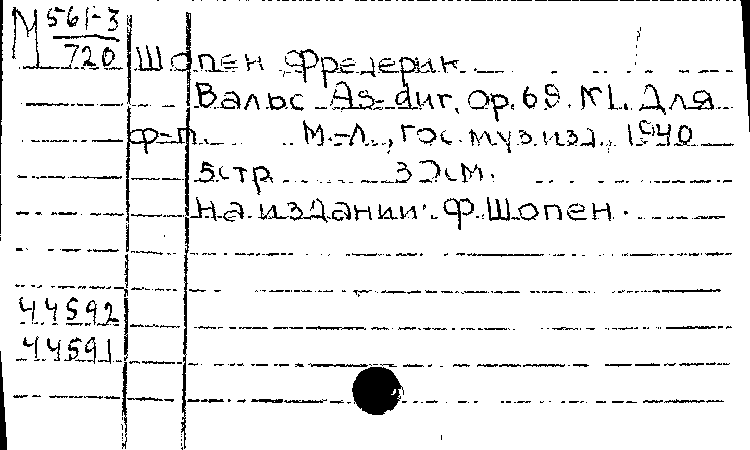 М 561-3
720
Шопен Фредерик
Вальс As-dur, Op. 69. N1. Для
ф-п. М.-Л., Гос. муз. изд., 1940
5 стр 30 см.
На издании: Ф. Шопен.
44592
44591